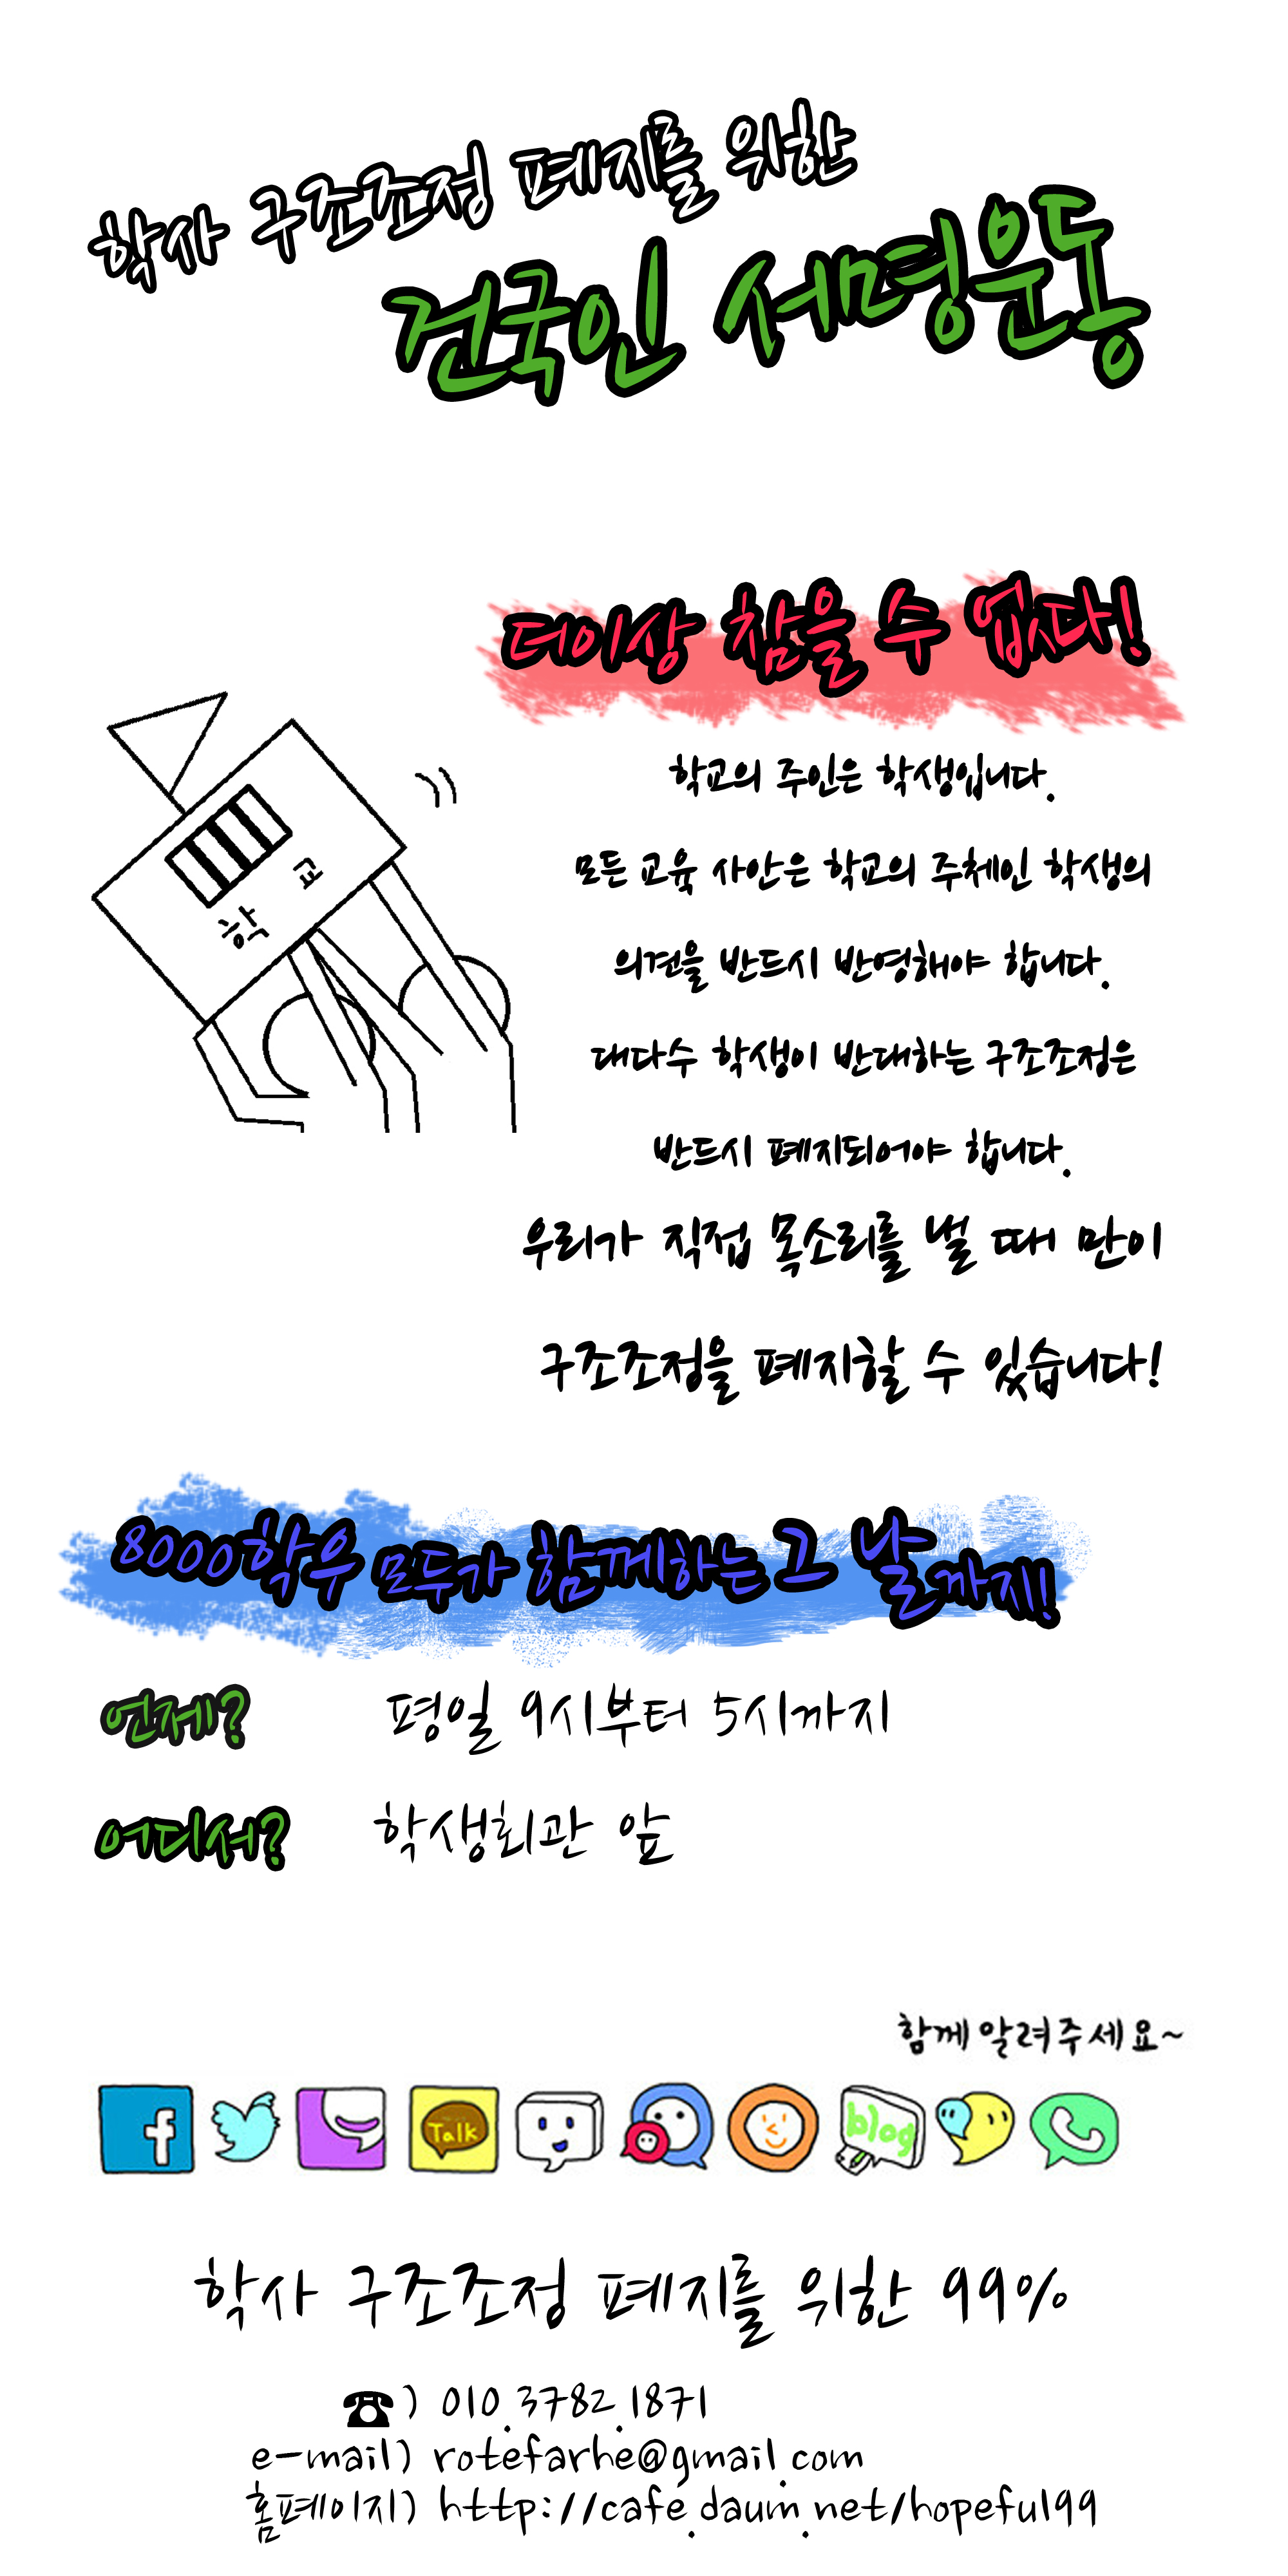 학사 구조조정 폐지를 위한
건국인 서명운동
더이상 참을 수 없다!
학교의 주인은 학생입니다.
모든 교육 사안은 학교의 주체인 학생의
의견을 반드시 반영해야 합니다.
대다수 학생이 반대하는 구조조정은
반드시 폐지되어야 합니다.
우리가 직접 목소리를 낼 때 만이
구조조정을 폐지할 수 있습니다!
학교
8000학우 모두가 함께하는 그 날까지!
언제? 평일 9시부터 5시까지
어디서? 학생회관 앞
함께 알려주세요~
f Talk blog
학사 구조조정 폐지를 위한 99%
☎) 010.3782.1871
e-mail) rotefarhe@gmail.com
홈페이지) http://cafe.daum.net/hopeful99